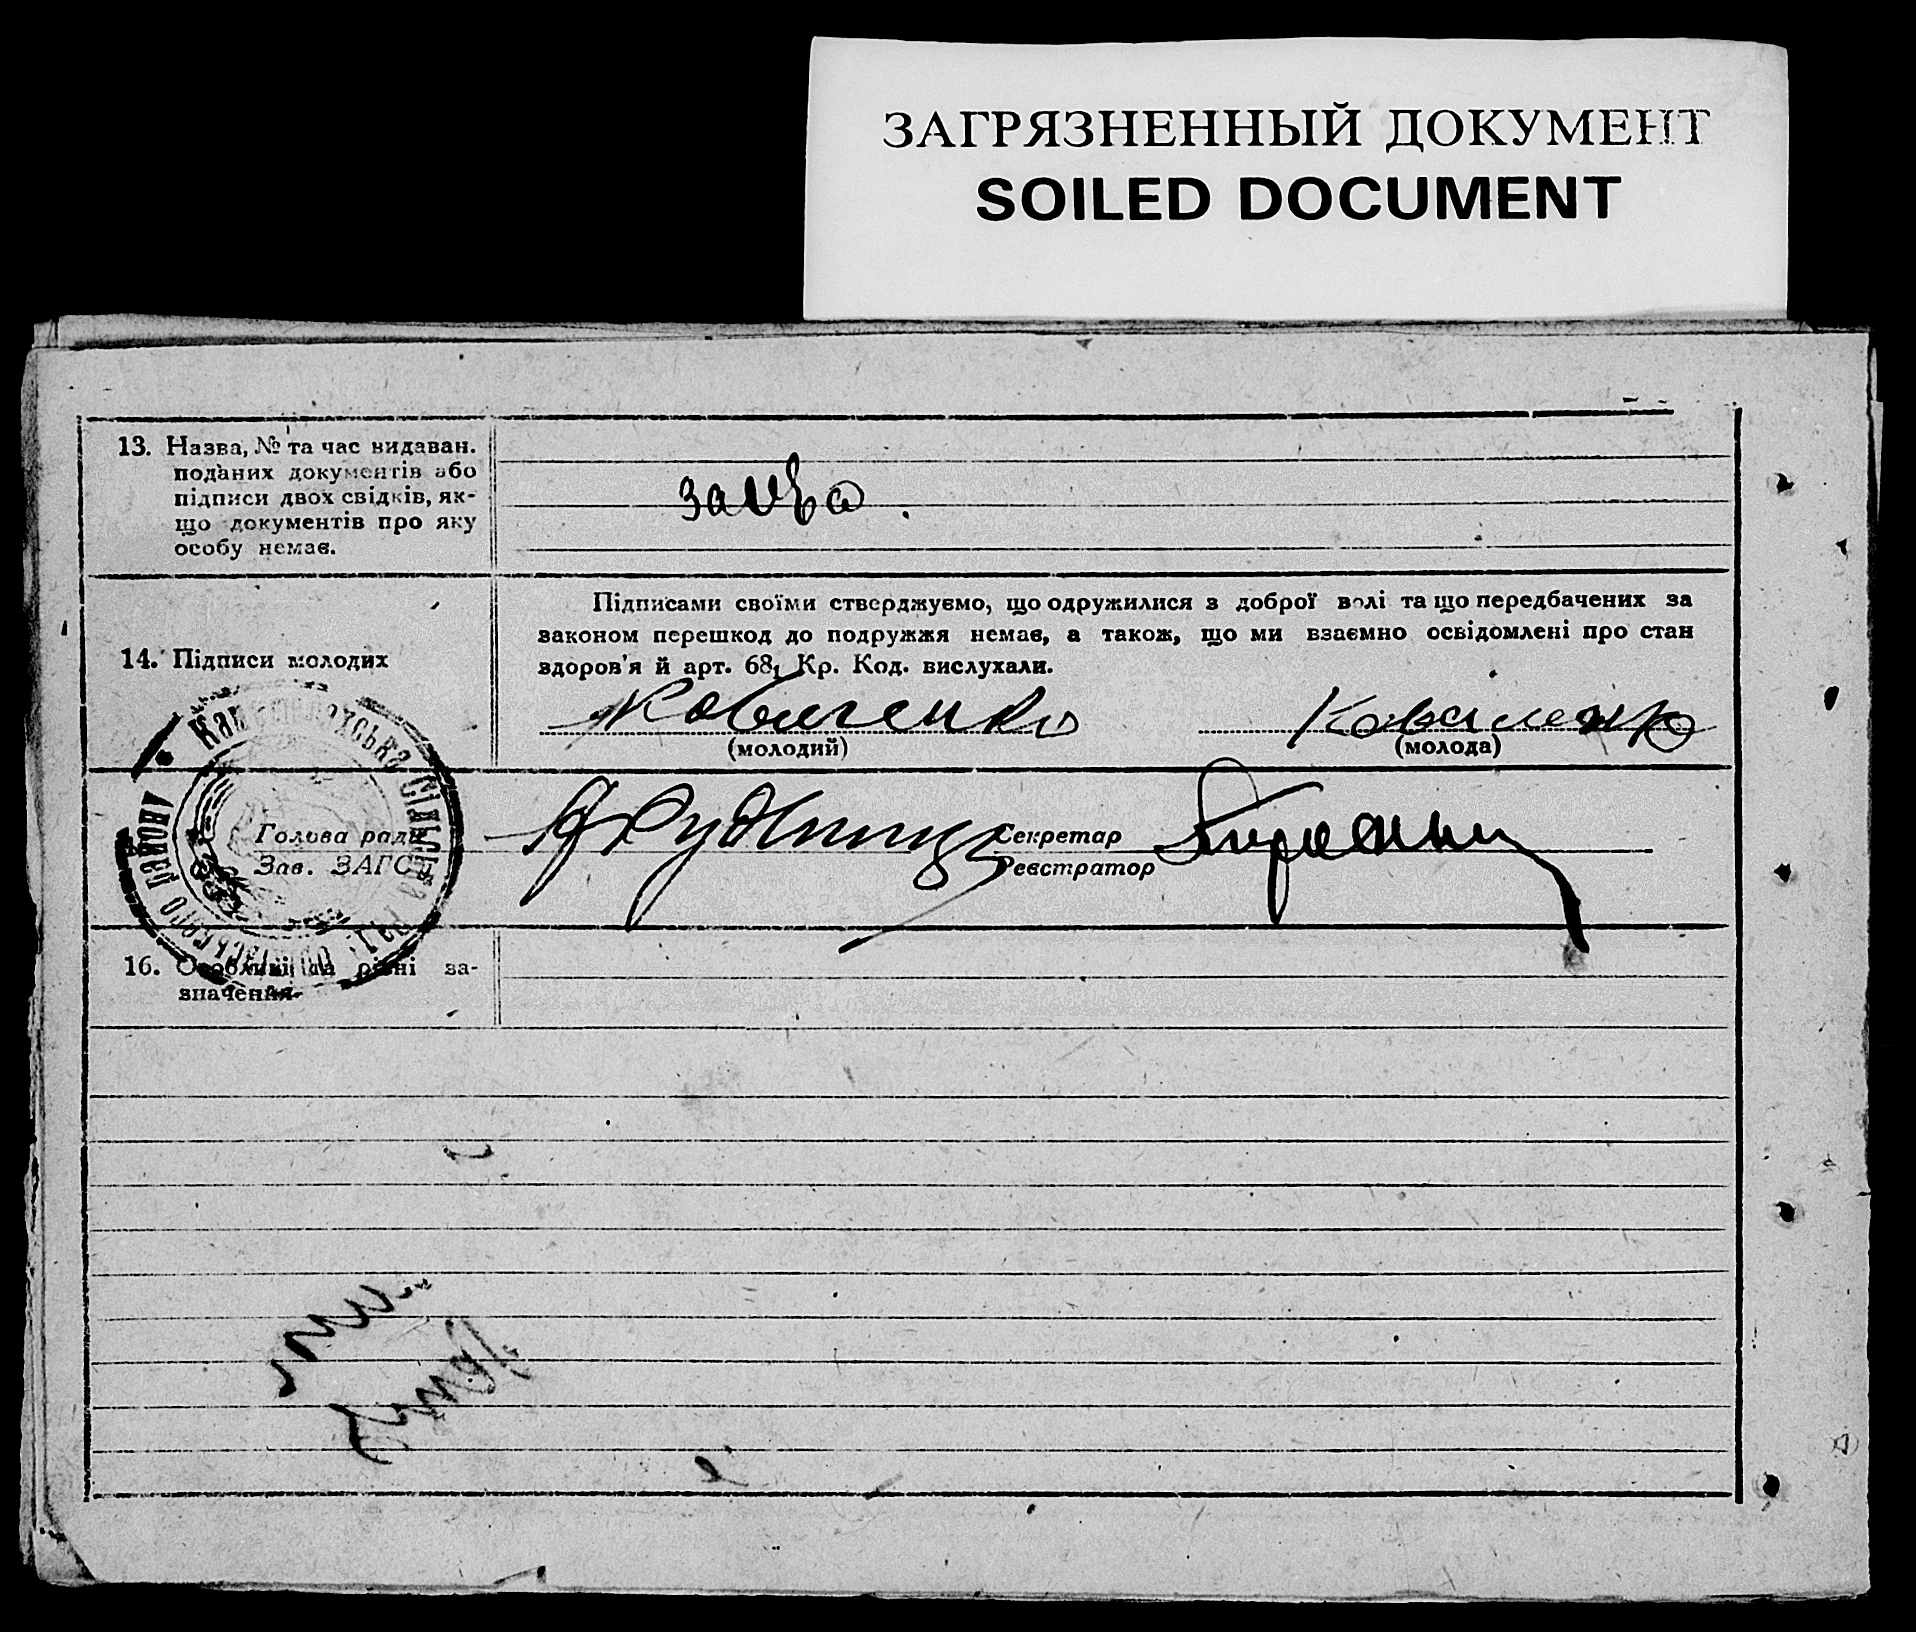 ЗАГРЯЗНЕННЫЙ ДОКУМЕНТ
SOILED DOCUMENT
13. Назва, № та час видаван.
поданих документів або
підписи двох свідків, як-
що документів про яку
особу немає.
заява.
14. Підписи молодих
Підписами своїми стверджуємо, що одружилися з доброї волі та що передбачених за
законом перешкод до подружжя немає, а також, що ми взаємно освідомлені про стан
здоров'я й арт. 68₁ Кр. Код. вислухали.
Коваленко
(молодий)
(молода)
Голова ради
Зав. ЗАГС'у
Секретар
Реєстратор
сільська рада
району
16. Особливі та різні за-
значення